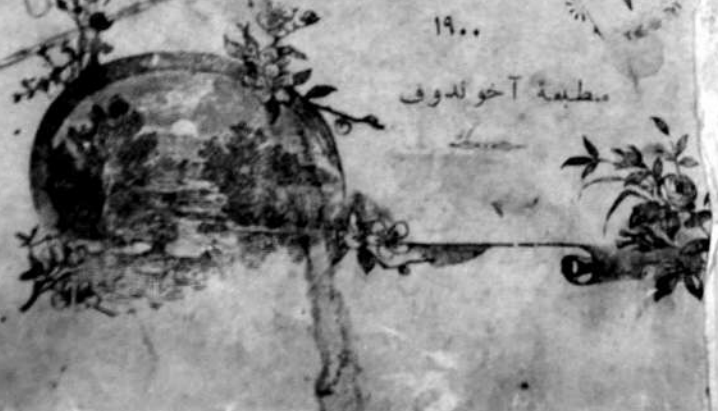 ١٩٠٠
مطبعة آخوندوف